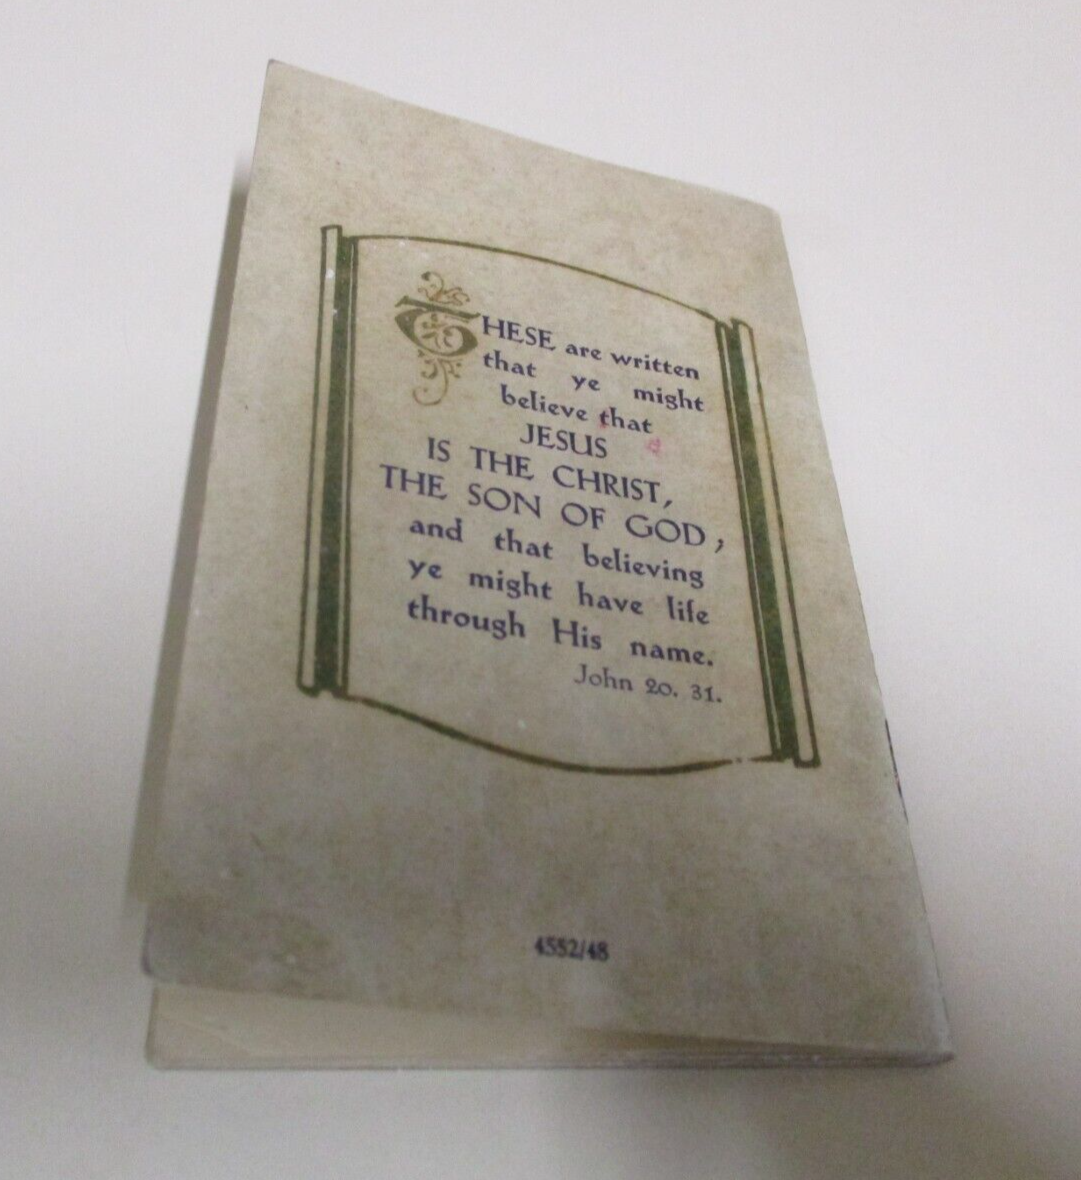 THESE are written
that ye might
believe that
JESUS
IS THE CHRIST,
THE SON OF GOD,
and that believing
ye might have life
through His name.
John 20. 31.
4552/48